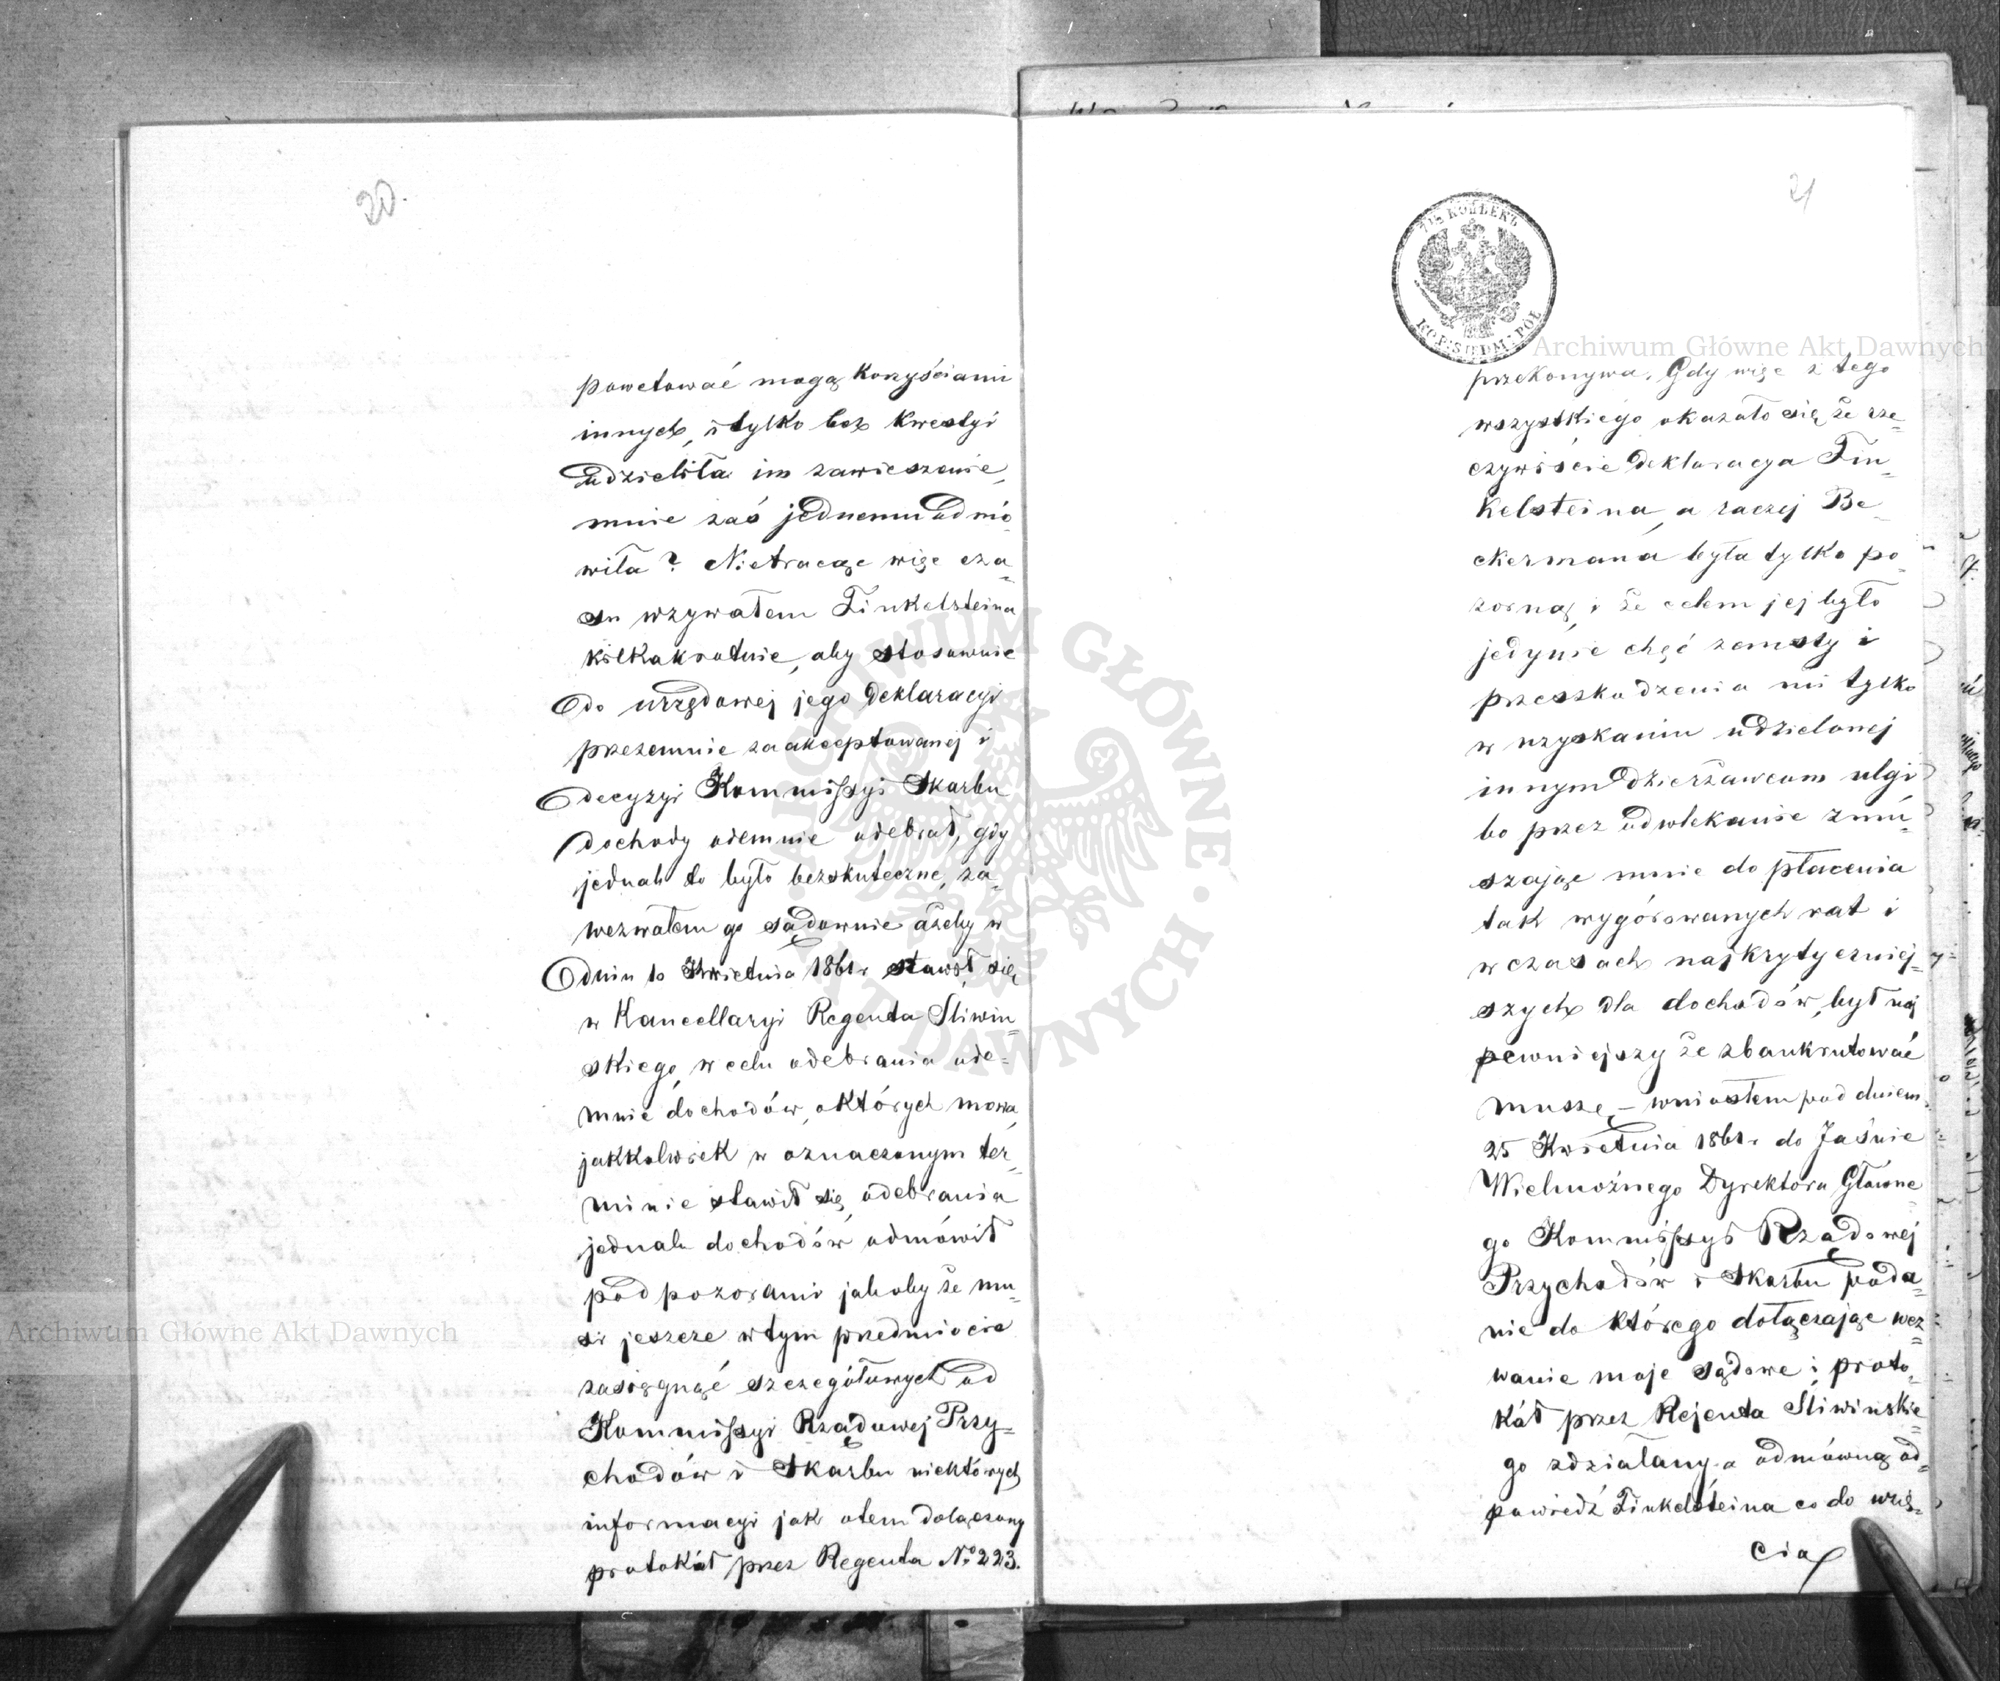 20.
powetować mogą korzyściami
innych, i tylko bez kwestyi
udzieliła im zawieszenie,
mnie zaś jednemu odmó-
wiła? Nietracąc więc cza-
su wzywałem Finkelsteina
kilkakrotnie, aby stosownie
do urzędowej jego deklaracyi
przezemnie zaakceptowanej i
decyzyi Kommissyi Skarbu
dochody odemnie odebrał, gdy
jednak to było bezskuteczne, za-
wezwałem go sądownie ażeby w
dniu 10 Kwietnia 1861 r. stawił się
w Kancellaryi Regenta Śliwiń-
skiego, w celu odebrania ode-
mnie dochodów, o których mowa,
jakkolwiek w oznaczonym ter-
minie stawił się, odebrania
jednak dochodów odmówił
pod pozorami jakoby że mu-
si jeszcze w tym przedmiocie
zasięgnąć szczegółowych od
Kommissyi Rządowej Przy-
chodów i Skarbu niektórych
informacyi jak otem dołączony
protokół przez Regenta No 223.
21
7½ KOPĚEKЪ
KOP. SIEDM I PÓŁ
przekonywa. Gdy więc z tego
wszystkiego okazało się że rze-
czywiście deklaracya Fin-
kelsteina, a raczej Be-
ckermana była tylko po-
zorną, i że celem jej było
jedynie chęć zemsty i
przeszkodzenia mi tylko
w uzyskaniu udzielonej
innym dzierżawcom ulgi
bo przez odwlekanie zmu-
szając mnie do płacenia
tak wygórowanych rat i
w czasach najkrytyczniej-
szych dla dochodów, był naj
pewniejszy że zbankrutować
muszę, – wniosłem pod dniem
25 Kwietnia 1861 r. do Jaśnie
Wielmożnego Dyrektora Główne
go Kommissyi Rządowej
Przychodów i Skarbu poda-
nie do którego dołączając wez-
wanie moje sądowe i proto-
kół przez Rejenta Śliwińskie-
go zdziałany, a odmówną od-
powiedź Finkelsteina co do wzię-
cia
Archiwum Główne Akt Dawnych
Archiwum Główne Akt Dawnych
ARCHIWUM GŁÓWNE AKT DAWNYCH